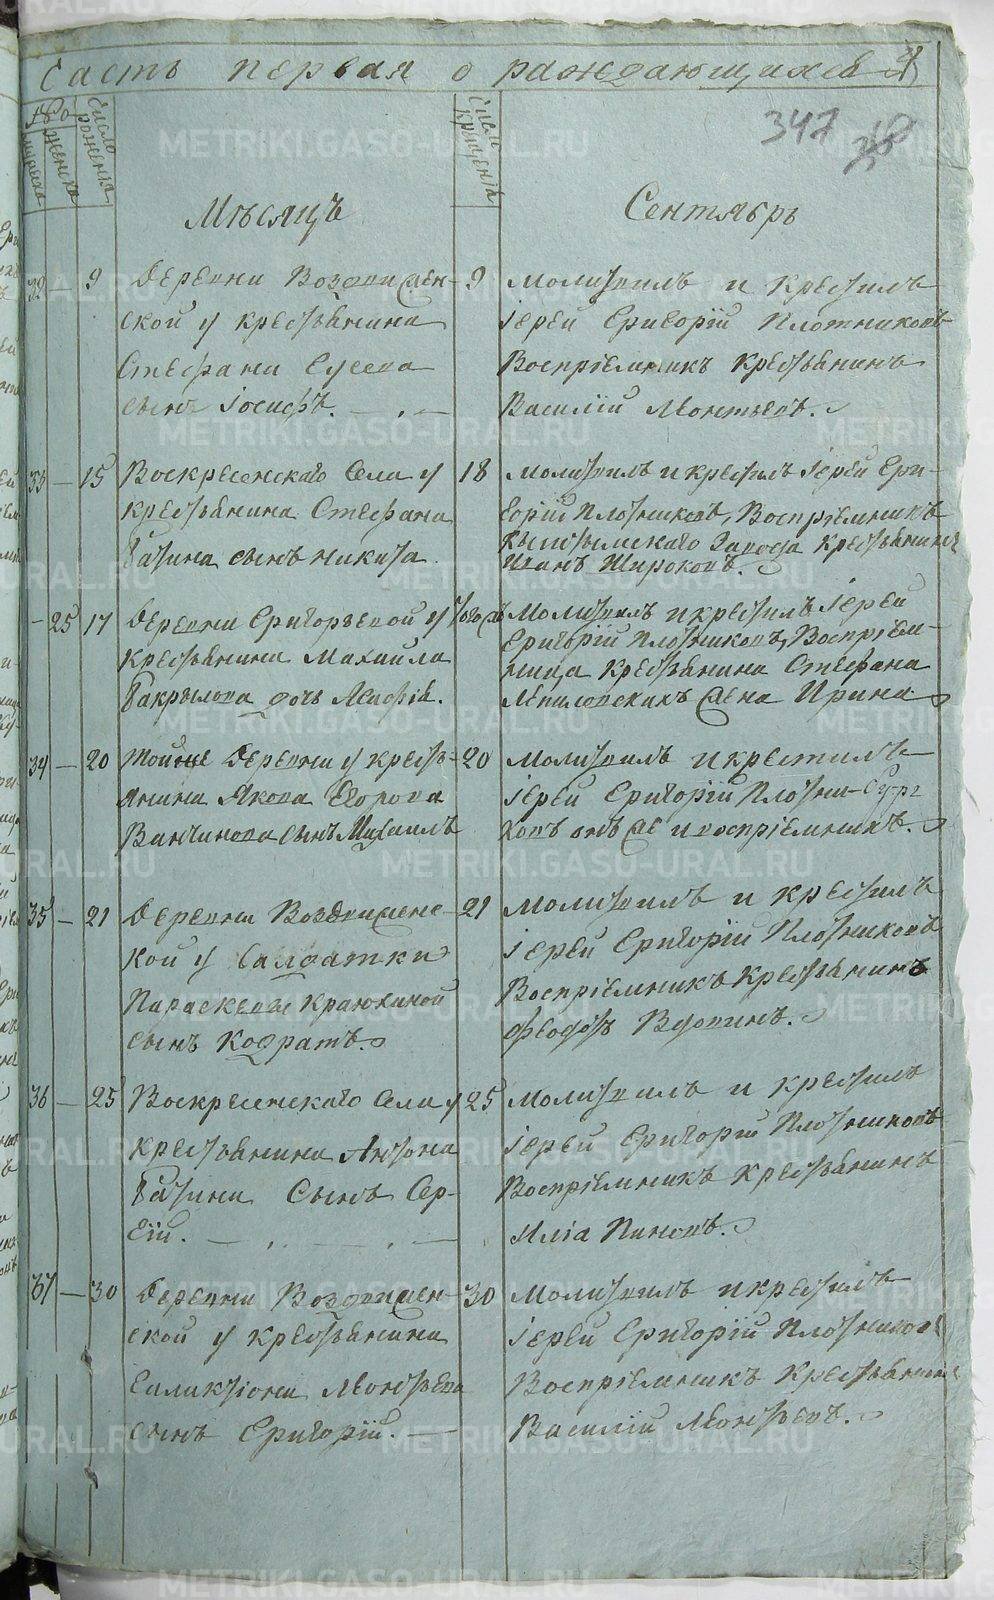 Часть первая о раждающихся
347
Число рожденія
Число крещенія
Мѣсяцъ
Сентябрь
32 9 Деревни Воздвижен-
ской у крестьянина
Стефана Елсева
сынъ Іосифъ.
9 Молитвилъ и крестилъ
Іерей Григорій Плотниковъ
Воспріемникъ крестьянинъ
Василій Леонтьевъ.
33 15 Воскресенскаго Села у
крестьянина Стефана
сынъ Никита
18 Молитвилъ и крестилъ Іерей Гри-
горій Плотниковъ, Воспріемникъ
Кыштымскаго Завода крестьянинъ
Иванъ Широковъ.
25 17 Деревни Григорьевой у
крестьянина Михаила
дочь
Молитвилъ и крестилъ Іерей
Григорій Плотниковъ, Воспріем-
ница крестьянина Стефана
жена Ирина
34 20 Тойже Деревни у кресть-
янина Якова Егорова
Ванчинова сынъ Михаилъ
20 Молитвилъ и крестилъ
Іерей Григорій Плотни-
ковъ онъ же и воспріемникъ.
35 21 Деревни Воздвиженс-
кой у салдатки
Параскевы Краюхиной
сынъ Кодратъ.
21 Молитвилъ и крестилъ
Іерей Григорій Плотниковъ
Воспріемникъ Крестьянинъ
Федотъ Вдовинъ.
36 25 Воскресенскаго Села у
крестьянина Антона
Сынъ Сер-
гій.
25 Молитвилъ и крестилъ
Іерей Григорій Плотниковъ
Воспріемникъ Крестьянинъ
Иліа Пановъ.
37 30 Деревни Воздвижен-
ской у крестьянина
Галактіона Леонтьева
сынъ Григорій.
30 Молитвилъ и крестилъ
Іерей Григорій Плотников
Воспріемникъ Крестьянинъ
Василій Леонтьевъ.
METRIKI.GASO-URAL.RU